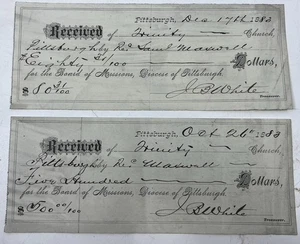 Pittsburgh, Dec 17th 1883
Received of Trinity Church,
Pittsburgh by Rev Saml Maxwell
Eighty 31/100 Dollars,
for the Board of Missions, Diocese of Pittsburgh.
$80 31/100 J B White
Treasurer.
Pittsburgh, Oct 26th 1883
Received of Trinity Church,
Pittsburgh by Rev Maxwell
Five Hundred Dollars,
for the Board of Missions, Diocese of Pittsburgh.
$500 00/100 J B White
Treasurer.